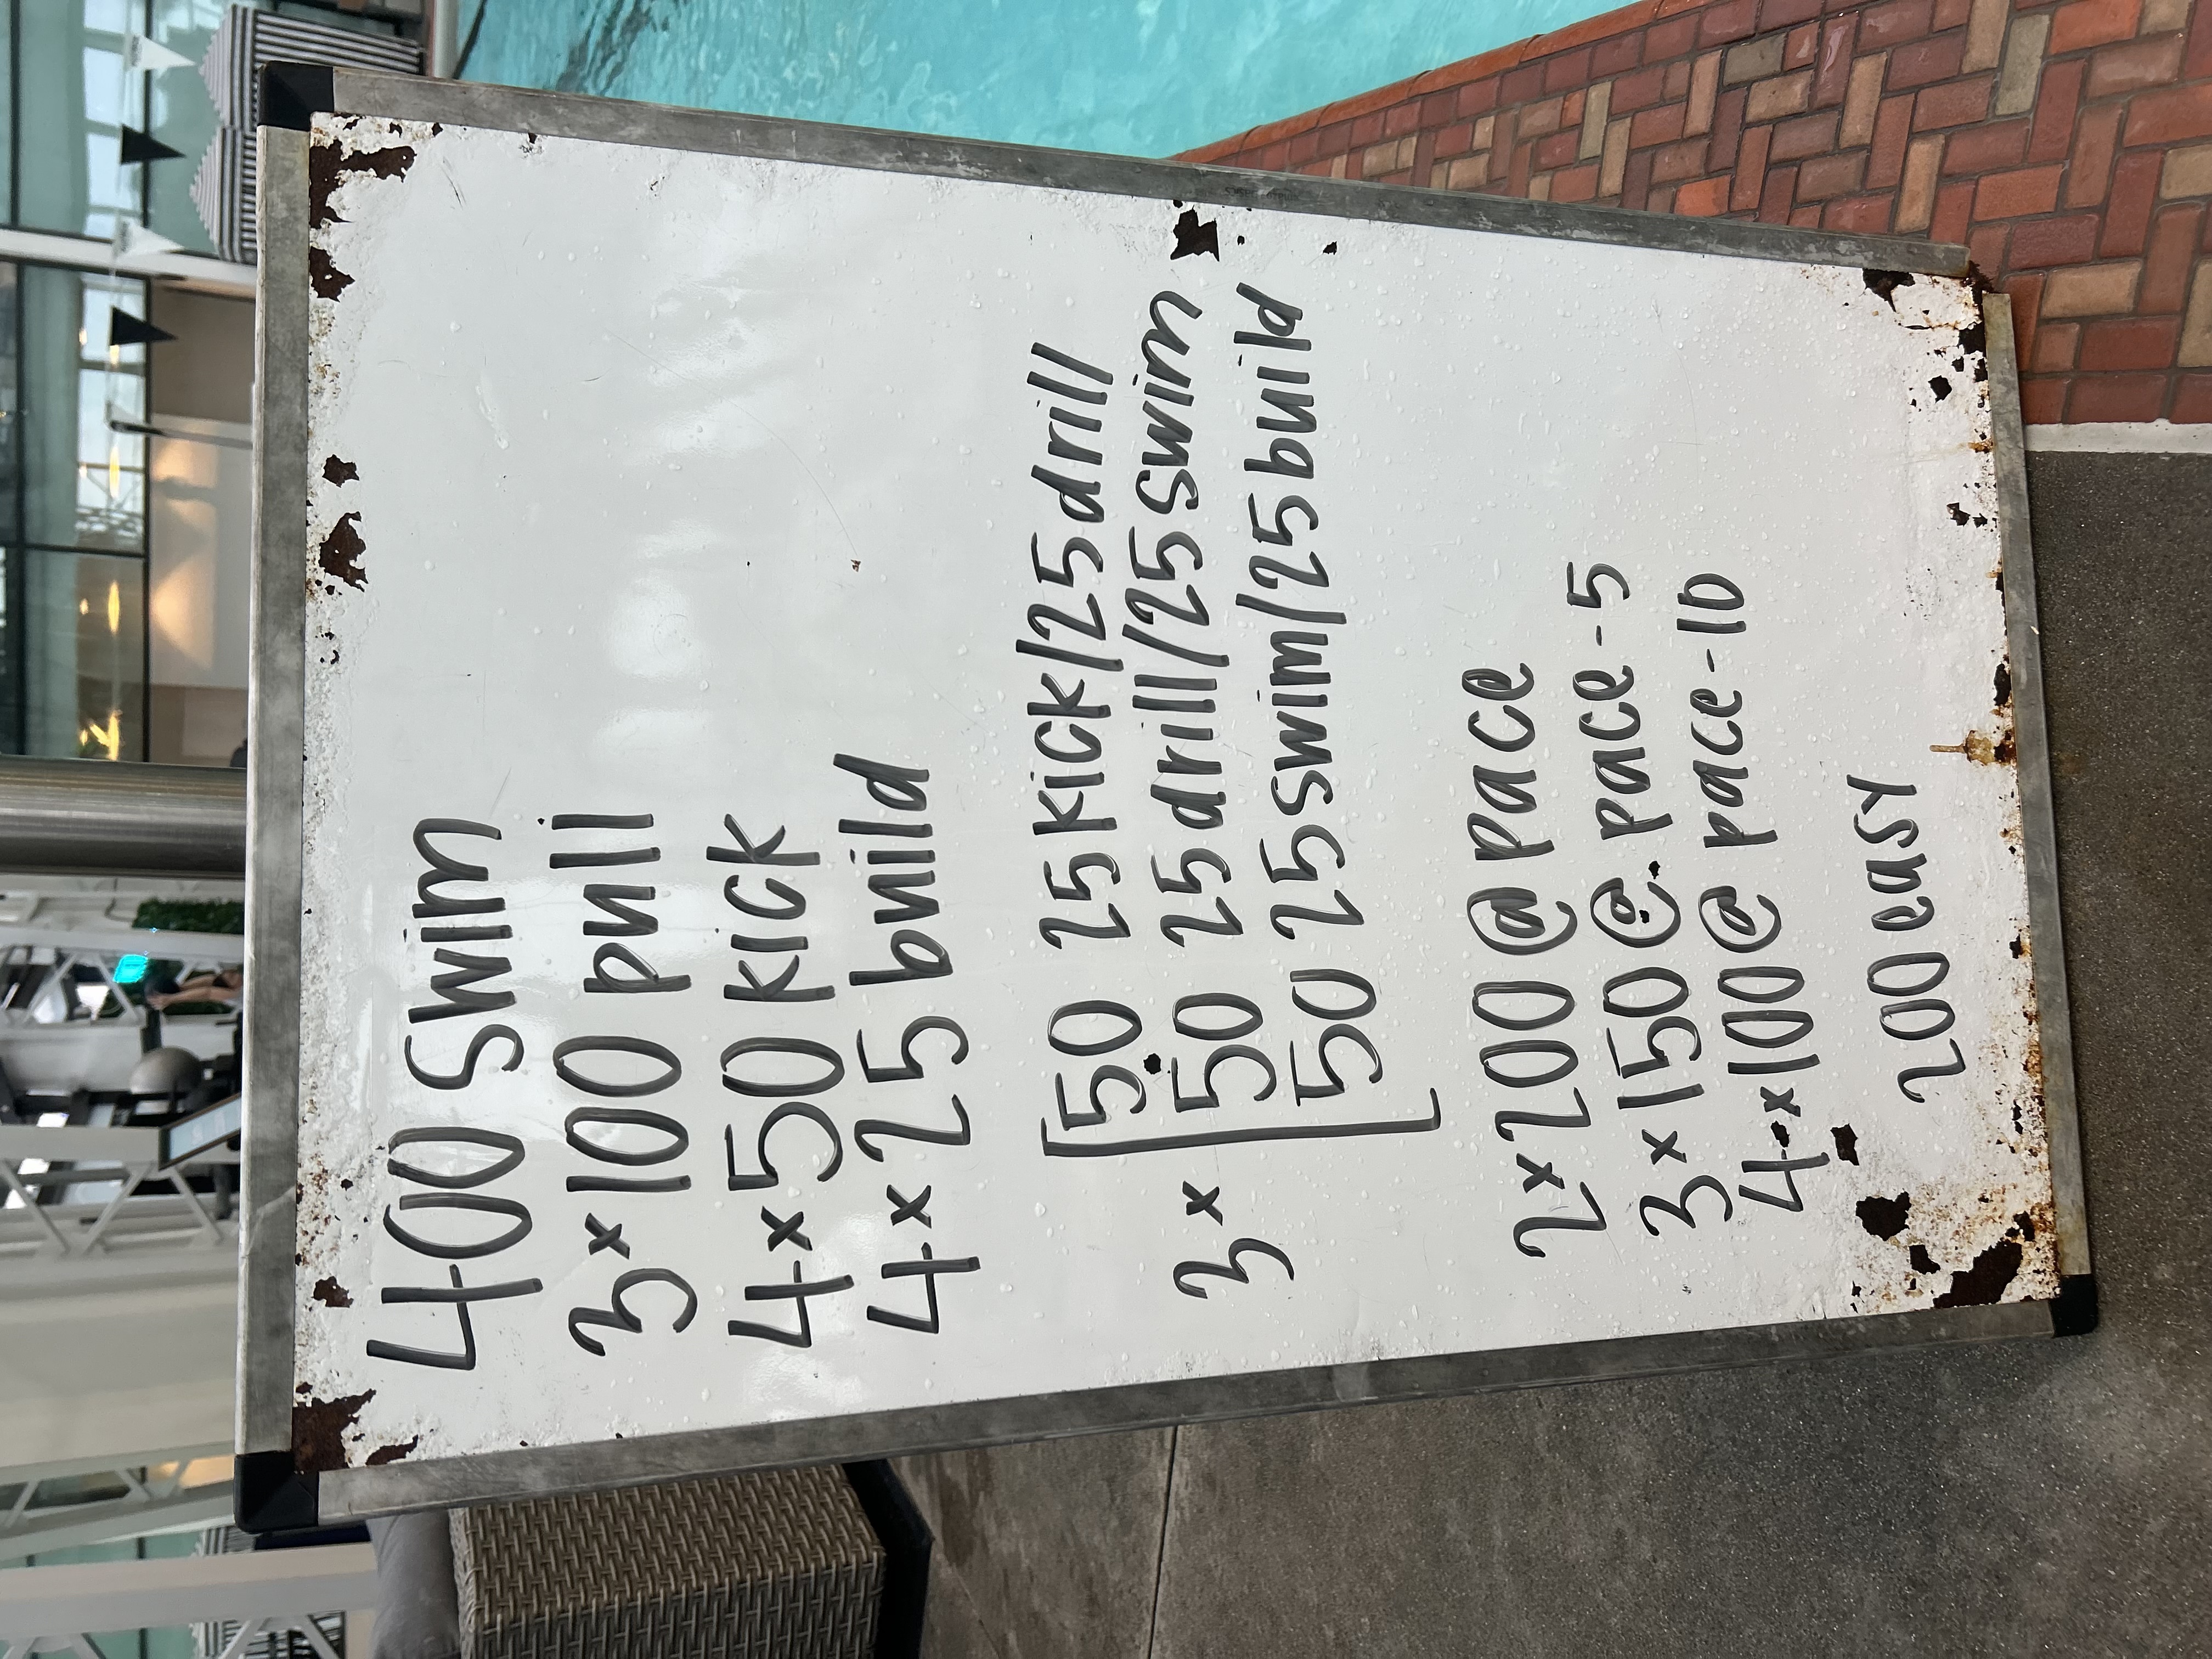 400 swim
3x100 pull
4x50 kick
4x25 build
50 25 kick/25 drill
3x [50 25 drill/25 swim
50 25 swim/25 build
2x200 @ pace
3x150 @ pace-5
4x100 @ pace-10
200 easy